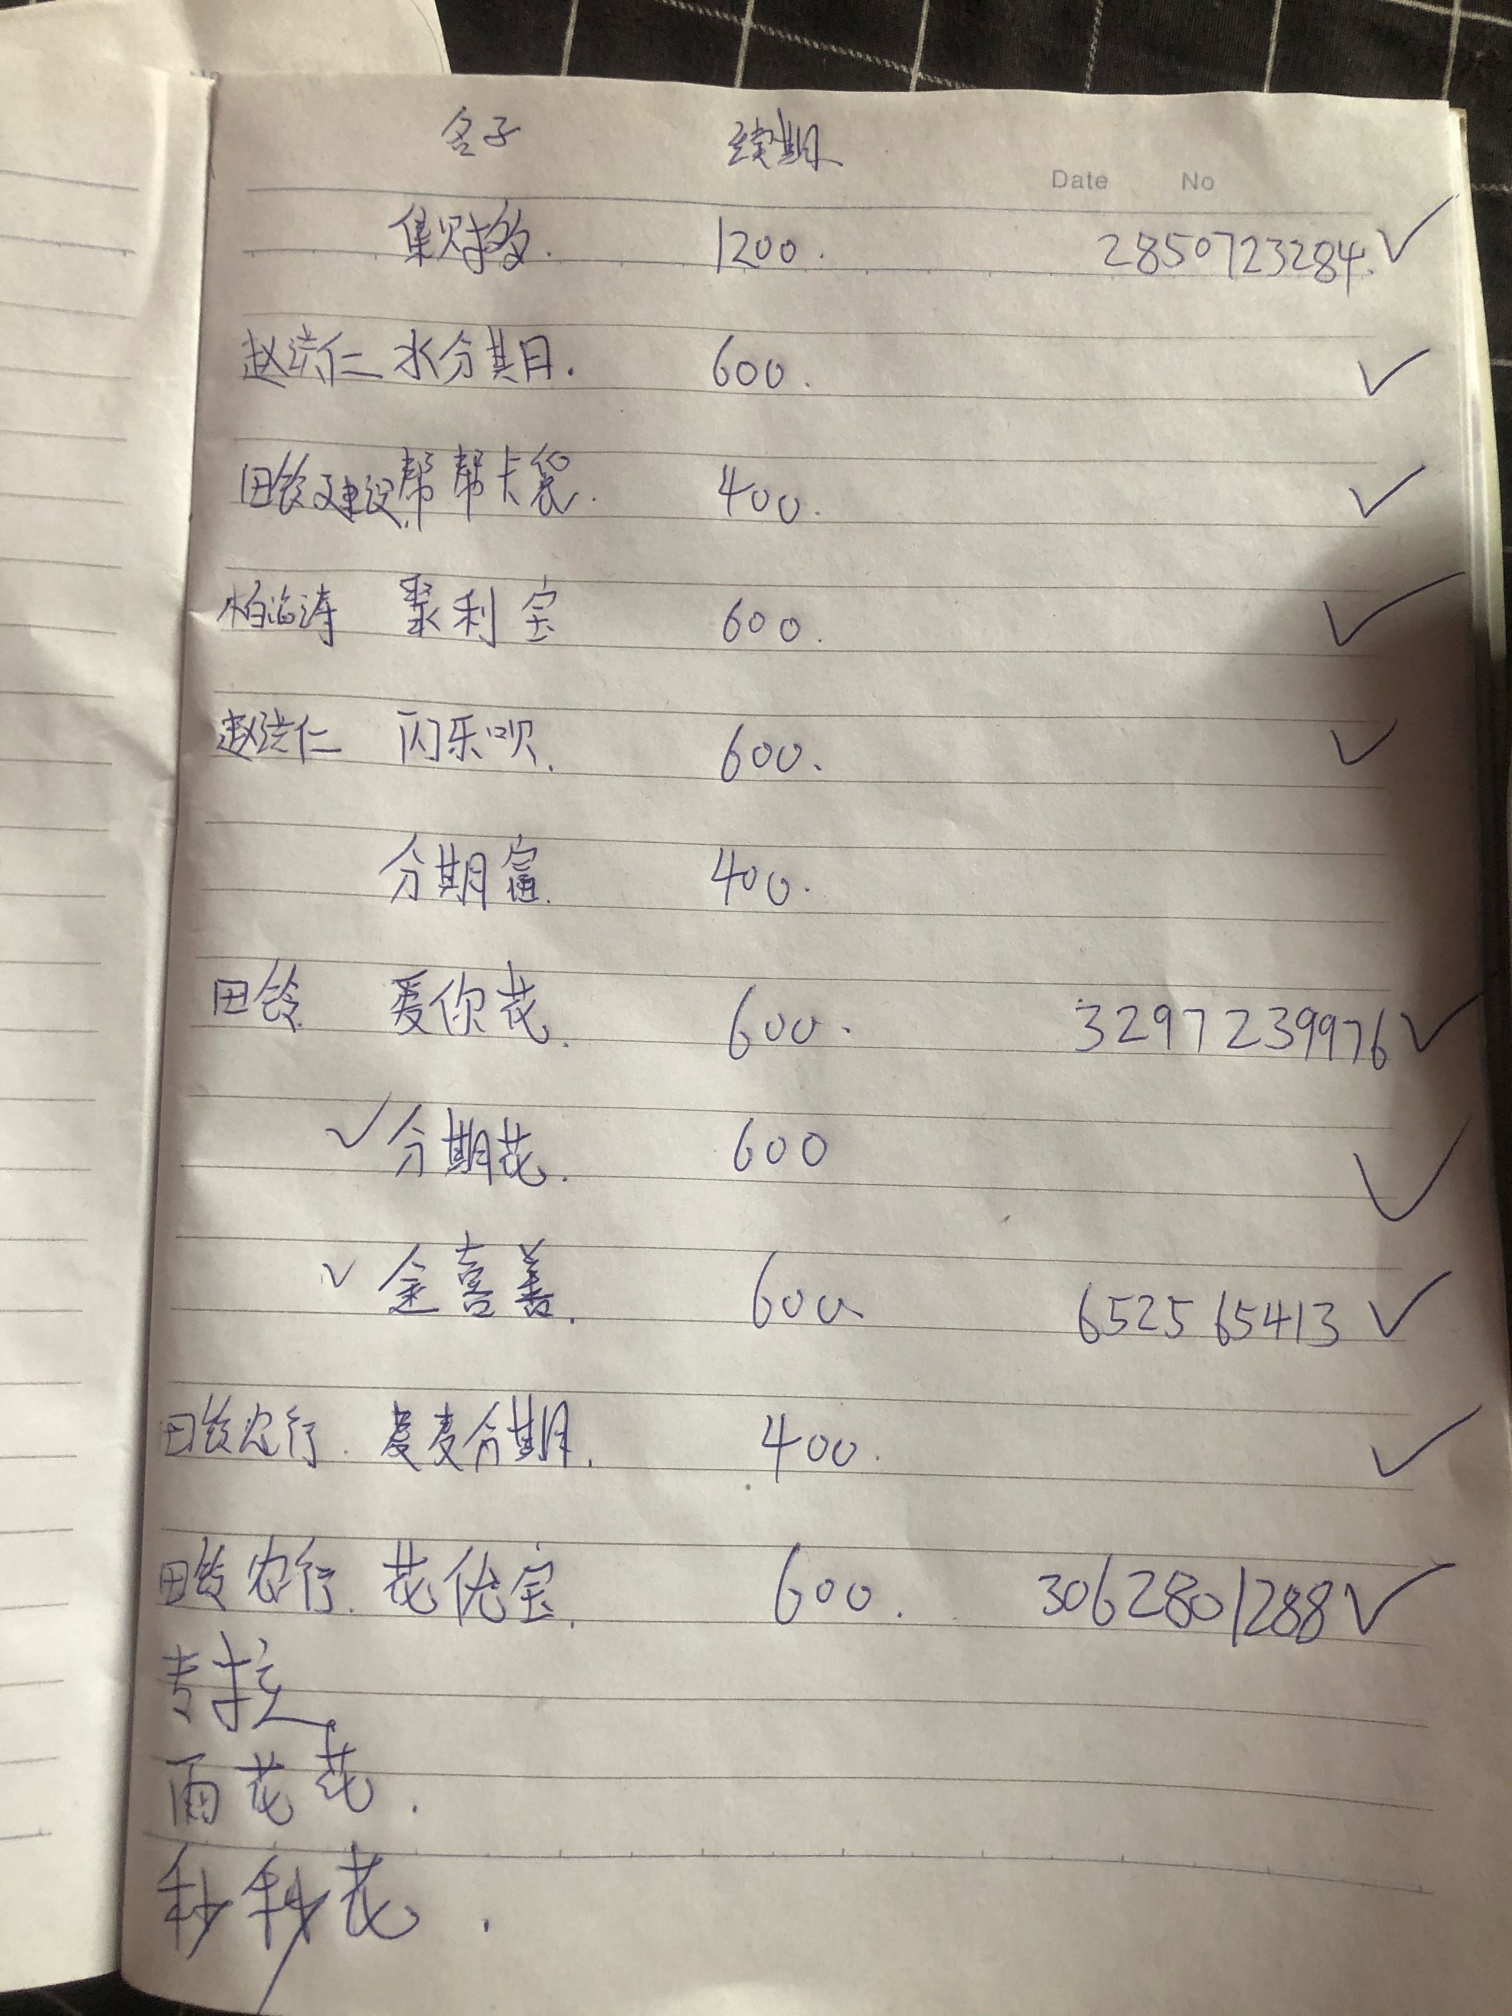 名子 续期
Date No
集财多. 1200. 2850723284. ✓
赵洪仁 水分期. 600. ✓
田铃建设 帮帮卡袋. 400. ✓
柏海涛 聚利宝 600. ✓
赵洪仁 闪乐呗. 600. ✓
分期富. 400.
田铃 爱你花. 600. 3297239976 ✓
✓ 分期花. 600 ✓
✓ 金喜善. 600 652565413 ✓
田铃农行. 麦分期. 400. ✓
田铃农行. 花优宝. 600. 3062801288 ✓
雨花花.
秒秒花.